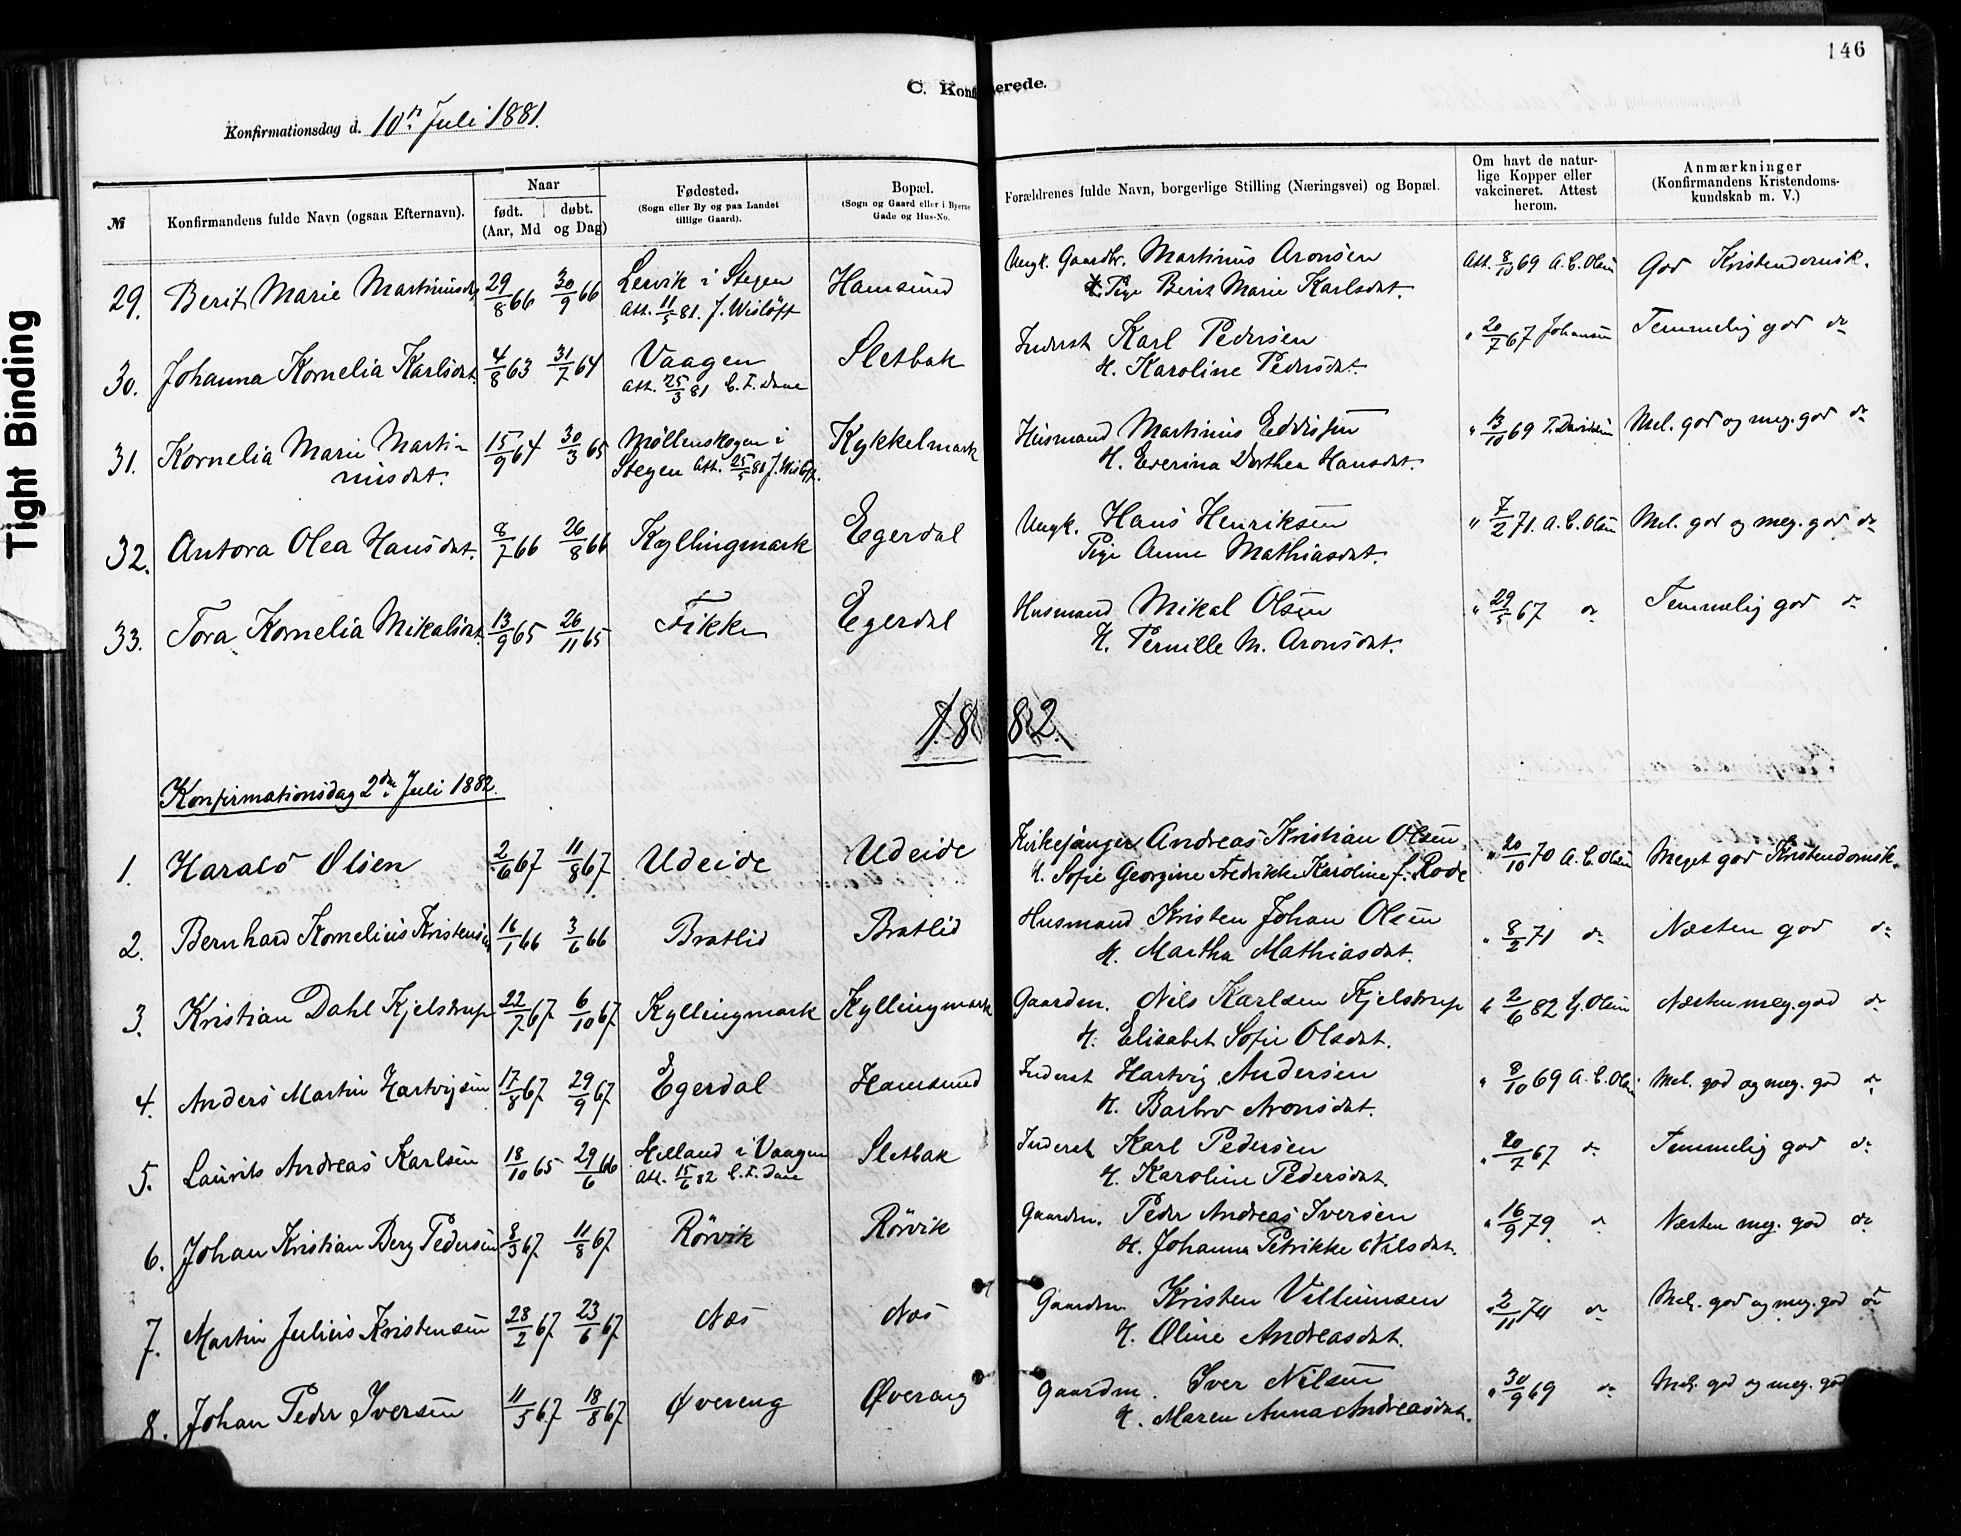 146
C. Konfirmerede.
Konfirmationsdag d. 10de Juli 1881.
№ Konfirmandens fulde Navn (ogsaa Efternavn). Naar født. døbt. (Aar, Md og Dag) Fødested. (Sogn eller By og paa Landet tillige Gaard). Bopæl. (Sogn og Gaard eller i Byerne Gade og Hus-No. Forældrenes fulde Navn, borgerlige Stilling (Næringsvei) og Bopæl. Om havt de naturlige Kopper eller vakcineret. Attest herom. Anmærkninger (Konfirmandens Kristendomskundskab m. V.)
29. Berit Marie Martinusdt. 29/8 66 30/9 66 Lervik i Stegen Hamsund Ungk. Gaardbr. Martinus Aronsen Att. 8/10 69 A. C. Olsen God Kristendomsk.
Att. 11/5 81. J. Wisløff Pige Berit Marie Karlsdat.
30. Johanna Kornelia Karlsdat. 4/8 63 31/7 64 Vaagen Sletbak Inderst Karl Pedersen " 20/7 67 Johansen Temmelig god do
Att. 25/3 81 C. F. Daae H. Karoline Pedersdat.
31. Kornelia Marie Marti- 15/9 64 30/3 65 Møllenskogen i Kykkelmark Husmand Martinus Eddissen " 13/10 69 T. Davidsen Mel. god og meg. god do
nusdat. Stegen Att. 25/5 81 J. Wisløff. H. Everina Dorthea Hansdat.
32. Antora Olea Hansdat. 8/7 66 26/8 66 Kyllingmark Egerdal Ungk. Hans Henriksen " 7/2 71. A. C. Olsen Mel. god og meg. god do
Pige Anne Mathiasdat.
33. Tora Kornelia Mikalsdat. 13/9 65 26/11 65 Fikke Egerdal Husmand Mikal Olsen " 29/5 67 do Temmelig god do
H. Pernille M. Aronsdat.
1882.
Konfirmationsdag 2den Juli 1882.
1. Harald Olsen 2/6 67 11/8 67 Udeide Udeide Kirkesanger Andreas Kristian Olsen " 20/10 70 A. C. Olsen Meget god Kristendomsk.
H. Sofie Georgine Fredrikke Karoline f. Rode
2. Bernhard Kornelius Kristensen 16/1 66 3/6 66 Bratlid Bratlid Husmand Kristen Johan Olsen " 8/2 71 do Næsten god do
H. Martha Mathiasdat.
3. Kristian Dahl Kjelstrup 22/7 67 6/10 67 Kyllingmark Kyllingmark Gaardm. Nils Karlsen Kjelstrup " 2/6 82 Olsen Næsten meg. god do
H. Elisabet Sofie Olsdat.
4. Anders Martin Hartvigsen 17/8 67 29/9 67 Egerdal Hamsund Inderst Hartvig Andersen " 8/10 69 A. C. Olsen Mel. god og meg. god do
H. Barbro Aronsdat.
5. Laurits Andreas Karlsen 18/10 65 29/6 66 Helland i Vaagen Sletbak Inderst Karl Pedersen " 20/7 67 do Temmelig god do
Att. 15/6 82 C. F. Daae H. Karoline Pedersdat.
6. Johan Kristian Berg Pedersen 8/3 67 11/8 67 Rörvik Rörvik Gaardm. Peder Andreas Iversen " 16/9 79 do Næsten meg. god do
H. Johanna Petrikke Nilsdat.
7. Martin Julius Kristensen 28/2 67 23/6 67 Næs Næs Gaardm. Kristen Villumsen " 2/11 70 do Mel. god og meg. god do
H. Oline Andreasdat.
8. Johan Peder Iversen 11/5 67 18/8 67 Øvereng Øvereng Gaardm. Iver Nilsen " 30/9 69 do Mel. god og meg. god
H. Maren Anna Andreasdat.
Tight Binding